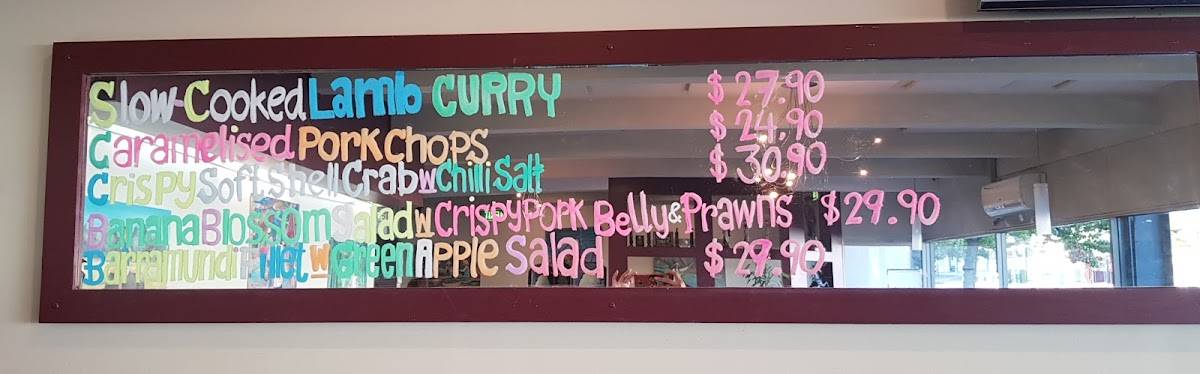 Slow Cooked Lamb CURRY $27.90
Caramelised Pork Chops $24.90
Crispy Soft Shell Crab w Chilli Salt $30.90
Banana Blossom Salad w Crispy Pork Belly & Prawns $29.90
Barramundi Fillet w Green Apple Salad $29.90